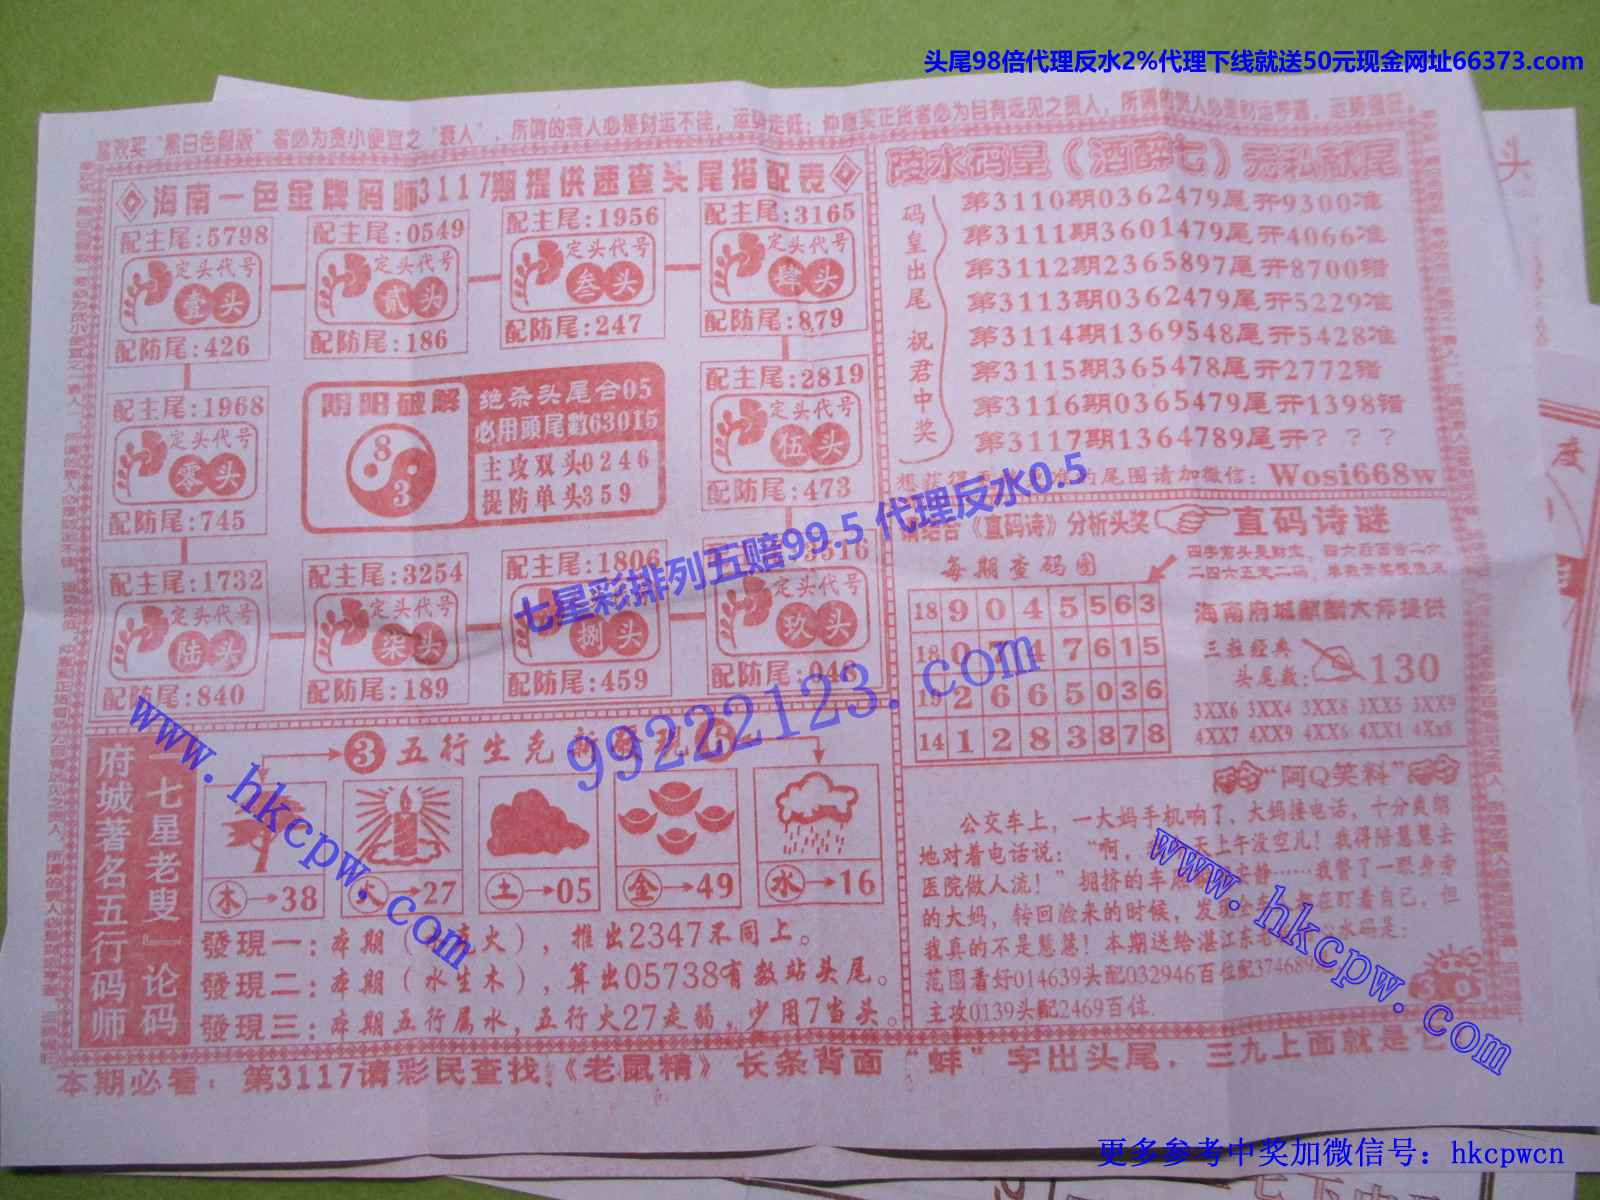 头尾98倍代理反水2%代理下线就送50元现金网址66373.com
喜欢买“黑白色翻版”者必为贪小便宜之“衰人”，所谓的衰人必是财运不佳，运势走低；仲意买正货者必为自有远见之贵人，所谓的贵人必是财运亨通，运势旺旺。
海南一色金牌码师3117期提供速查头尾搭配表
配主尾:5798
定头代号
壹头
配防尾:426
配主尾:0549
定头代号
贰头
配防尾:186
配主尾:1956
定头代号
叁头
配防尾:247
配主尾:3165
定头代号
肆头
配防尾:879
配主尾:1968
定头代号
零头
配防尾:745
阴阳破解
8
3
绝杀头尾合05
必用頭尾數63015
主攻双头0246
提防单头359
配主尾:2819
定头代号
伍头
配防尾:473
配主尾:1732
定头代号
陆头
配防尾:840
配主尾:3254
定头代号
柒头
配防尾:189
配主尾:1806
定头代号
捌头
配防尾:459
定头代号
玖头
配防尾:046
陵水码皇（酒醉七）无私献尾
码皇出尾 祝君中奖
第3110期0362479尾开9300准
第3111期3601479尾开4066准
第3112期2365897尾开8700错
第3113期0362479尾开5229准
第3114期1369548尾开5428准
第3115期365478尾开2772错
第3116期0365479尾开1398错
第3117期1364789尾开？？？
尾图请加微信：Wosi668w
请结合《直码诗》分析头奖
直码诗谜
每期查码图
18 9 0 4 5 5 6 3
18 0 2 4 7 6 1 5
19 2 6 6 5 0 3 6
14 1 2 8 3 8 7 8
海南府城麒麟大师提供
三推经典
头尾数:
130
3XX6 3XX4 3XX8 3XX5 3XX9
4XX7 4XX9 4XX6 4XX1 4Xx8
“阿Q笑料”
公交车上，一大妈手机响了，大妈接电话，十分爽朗
地对着电话说：“啊，天上午没空儿！我得陪慧慧去
医院做人流！”拥挤的车厢安静……我瞥了一眼身旁
的大妈，转回脸来的时候，发现全车在盯着自己，但
我真的不是慧慧！本期送给湛江东心水码是:
范围看好014639头配032946百位配374689
主攻0139头配2469百位.
府城著名五行码师
『七星老叟』论码
3
五行生克新发现
木→38
火→27
土→05
金→49
水→16
發現一：本期（火），推出2347不同上。
發現二：本期（水生木），算出05738有数站头尾。
發現三：本期五行属水，五行火27走弱，少用7当头。
本期必看：第3117请彩民查找《老鼠精》长条背面“蚌”字出头尾，三九上面就是它
七星彩排列五赔99.5 代理反水0.5
99222123.com
www.hkcpw.com
www.hkcpw.com
更多参考中奖加微信号：hkcpwcn